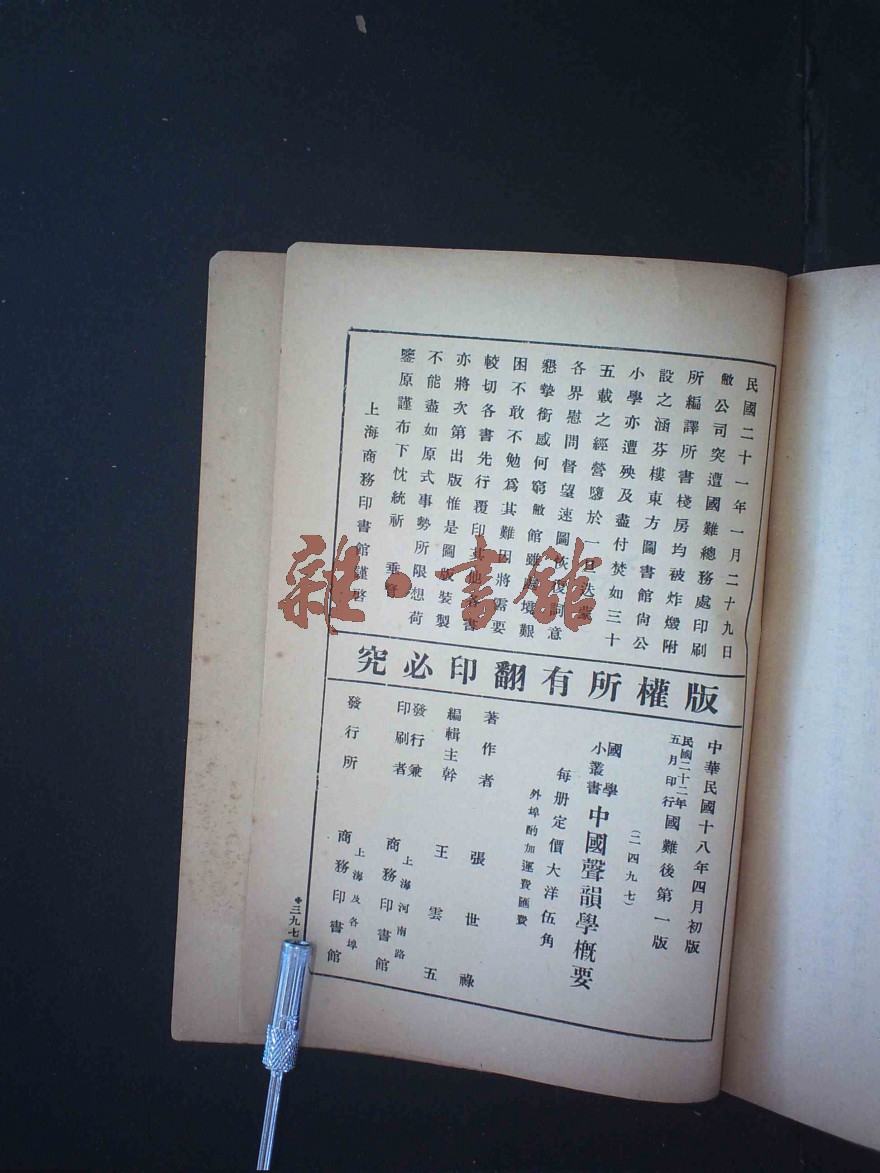 民國二十一年一月二十九日
敝公司突遭國難總務處印刷
所編譯所書棧房均被炸燬附
設之涵芬樓東方圖書館尙公
小學亦遭殃及盡付焚如三十
五載之經營隳於一旦迭蒙
各界慰問督望速圖恢復詞意
懇摯銜感何窮敝館雖處境艱
困不敢不勉爲其難因將需要
較切各書先行覆印其他各書
亦將次第出版惟是圖版裝製
不能盡如原式事勢所限想荷
鑒原謹布下忱統祈 垂詧
上海商務印書館謹啓
版權所有翻印必究
中華民國十八年四月初版
民國二十二年五月印行國難後第一版
(二四九七)
國學小叢書 中國聲韻學概要
每册定價大洋伍角
外埠酌加運費匯費
著作者 張世祿
編輯主幹 王雲五
發行兼印刷者 上海河南路 商務印書館
發行所 上海及各埠 商務印書館
三九七
雜·書館